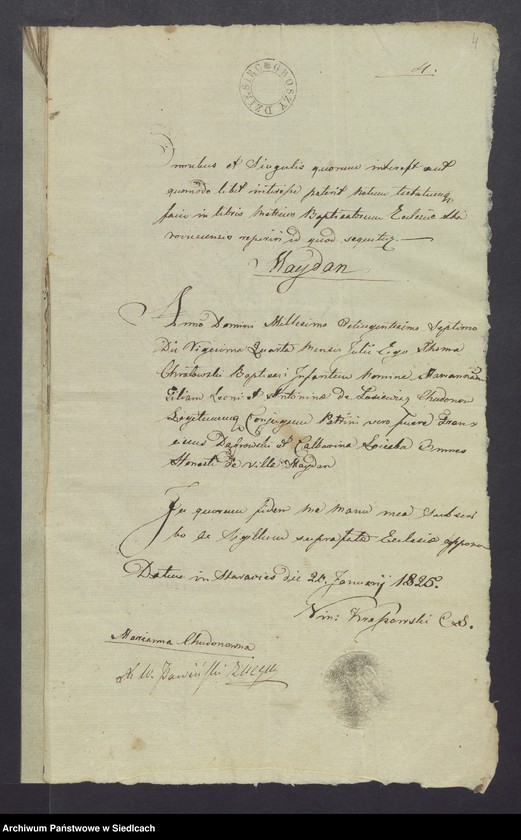 4
4.
DZIESIĘĆ GROSZY
Omnibus et Singulis quorum interest aut
quomodo libet interesse poterit notum testatumq
facio in libris Metrices Baptisatorum Ecclesie
reperiri id quod sequitur
Haydan
Anno Domini Millesimo Octingentesimo Septimo
Die Vigesima Quarta Mensis Julii Ego Thoma
Baptisavi Infantem Nomine Mariannam
Filiam Leoni et Antonine de Chudonow
Legitimorumq Conjugum Patrini vero fuere Fran
ciscus Dąbrowski et Catharina Omnes
Honesti de Villa Haydan
In quorum fidem me manu mea Subscri
bo ac Sigillum suprafate Ecclesie appono
Datum in die 24 Januarij 1826.
Vin: C. S.
Marianna Chudonowna